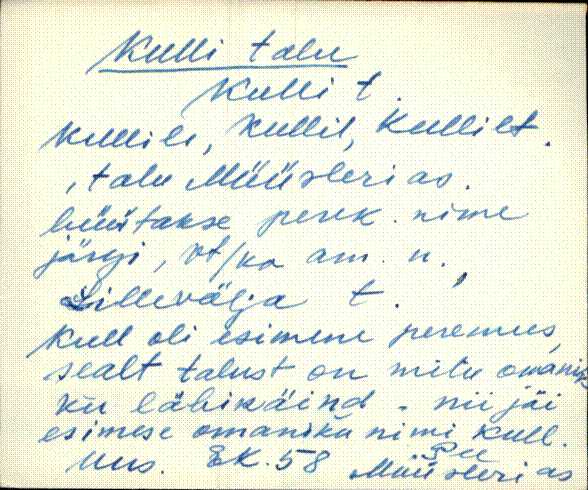 Kulli talu
Kulli t.
Kullile, Kullil, Kullilt.
, talu Müüsleri as.
hüütakse perek. nime
järgi, vt/ka am. n.
Lillevälja t.
Kull oli esimene peremees,
sealt talust on mitu omanik-
ku läbikäind - nii jäi
esimese omaniku nimi Kull.
Uus. EK. 58 Pee
Müüsleri as